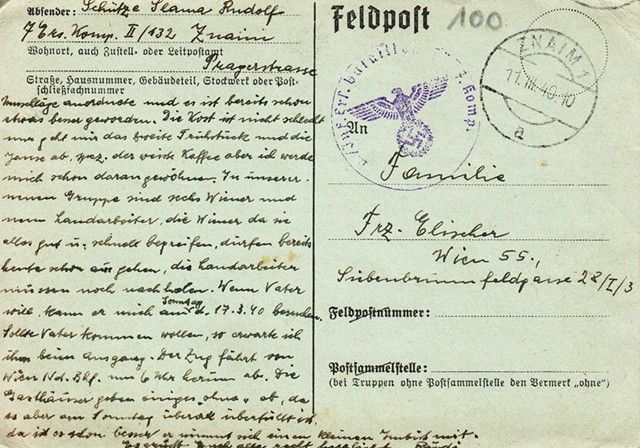 Absender: Schütze Slama Rudolf
7 Ers. Komp. II/132 Znaim
Wohnort, auch Zustell- oder Leitpostamt
Pragerstrasse
Straße, Hausnummer, Gebäudeteil, Stockwerk oder Post-
schließfachnummer
anordnete und es ist bereits schon
etwas besser geworden. Die Kost ist nicht schlecht
nur geht mir das zweite Frühstück und die
Jause ab, spez. der weiße Kaffee aber ich werde
mich schon daran gewöhnen. In unserer
neuen Gruppe sind sechs Wiener und
neun Landarbeiter, die Wiener da sie
alles gut u. schnell begreifen, dürfen bereits
heute schon aus gehen, die Landarbeiter
müssen noch nach holen. Wenn Vater
will, kann er mich am Sonntag d. 17.3.40 besuchen.
Sollte Vater kommen wollen, so erwarte ich
ihn beim Ausgang. Der Zug fährt von
Wien Nd. Bhf. um 6 Uhr herum ab. Die
Gasthäuser geben einiges "ohne" ab, da
es aber am Sonntag überall überfüllt ist
da ist es schon besser er nimmt sich einen kleinen Imbiß mit.
Es grüßt Euch alle recht herzlichst Rudi
Feldpost
100
ZNAIM 1
11.III.40.-10
a
4. Komp.
An
Familie
Frz. Elischer
Wien 55.,
Siebenbrunnfeldgasse 28/I/3
Feldpostnummer:
Postsammelstelle:
(bei Truppen ohne Postsammelstelle den Vermerk „ohne")